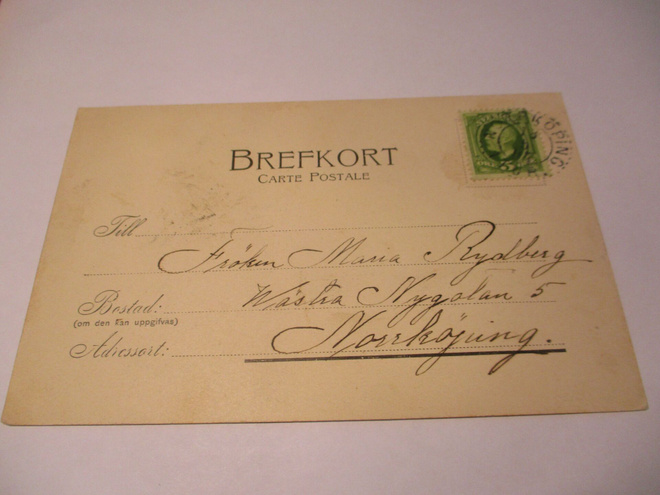 BREFKORT
CARTE POSTALE
KÖPING
5
Till
Fröken Maria Rydberg
Bostad: Wästra Nygatan 5
(om den kan uppgifvas)
Adressort: Norrköping.